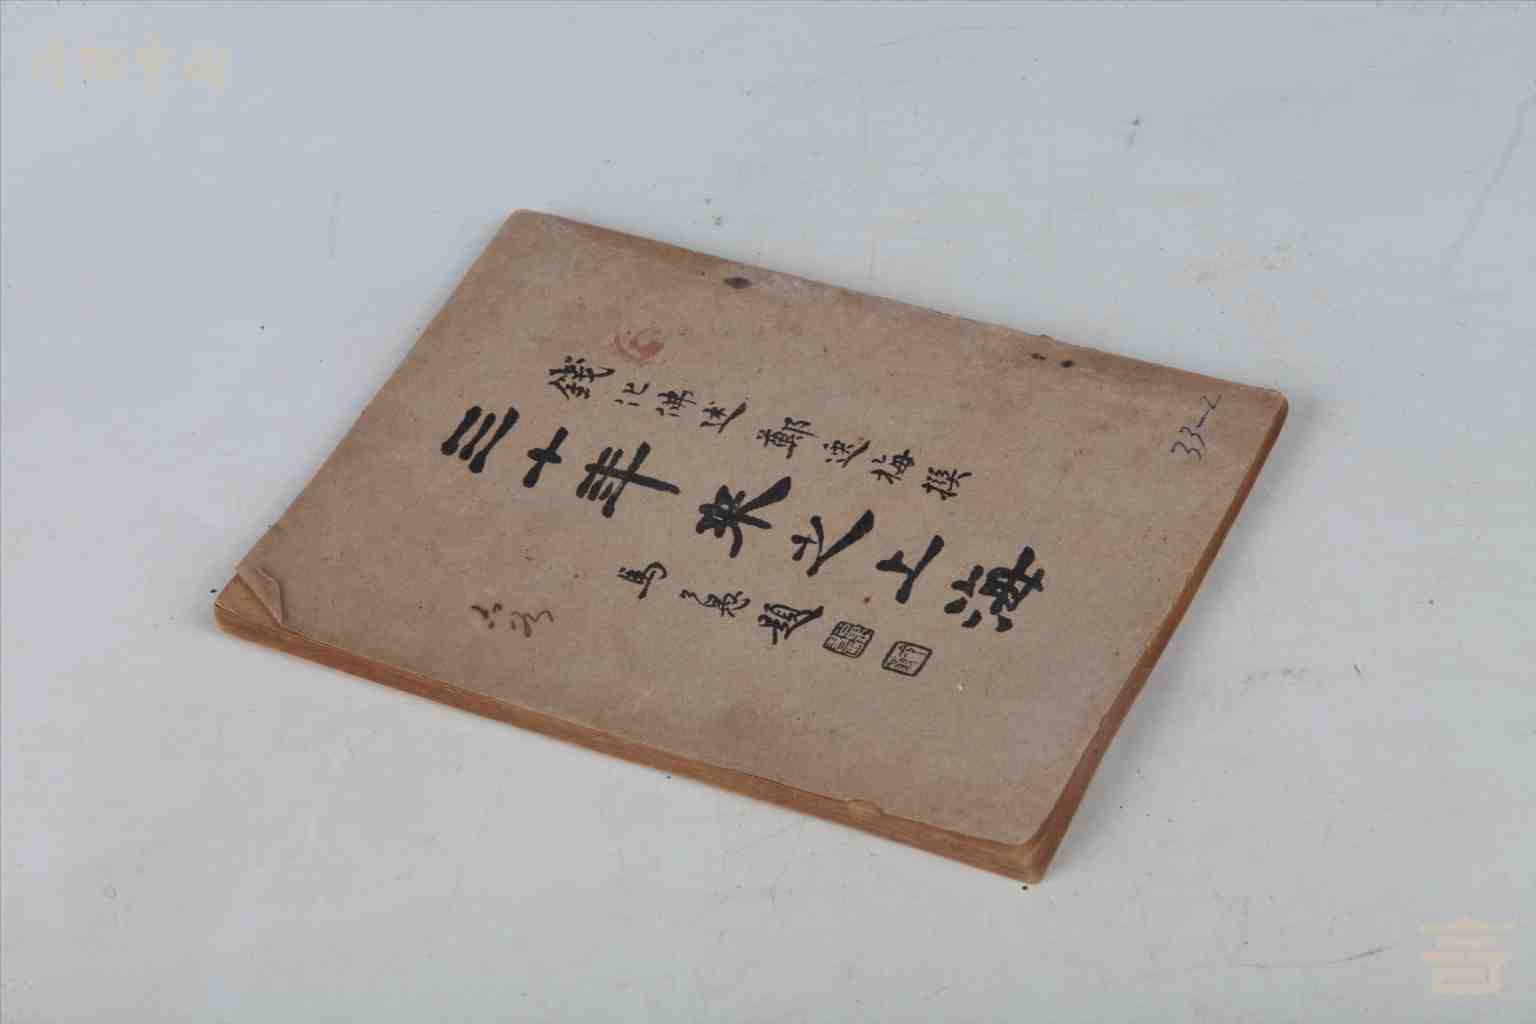 錢化佛述 鄭逸梅撰
三十年來之上海
馬公愚題
33-2